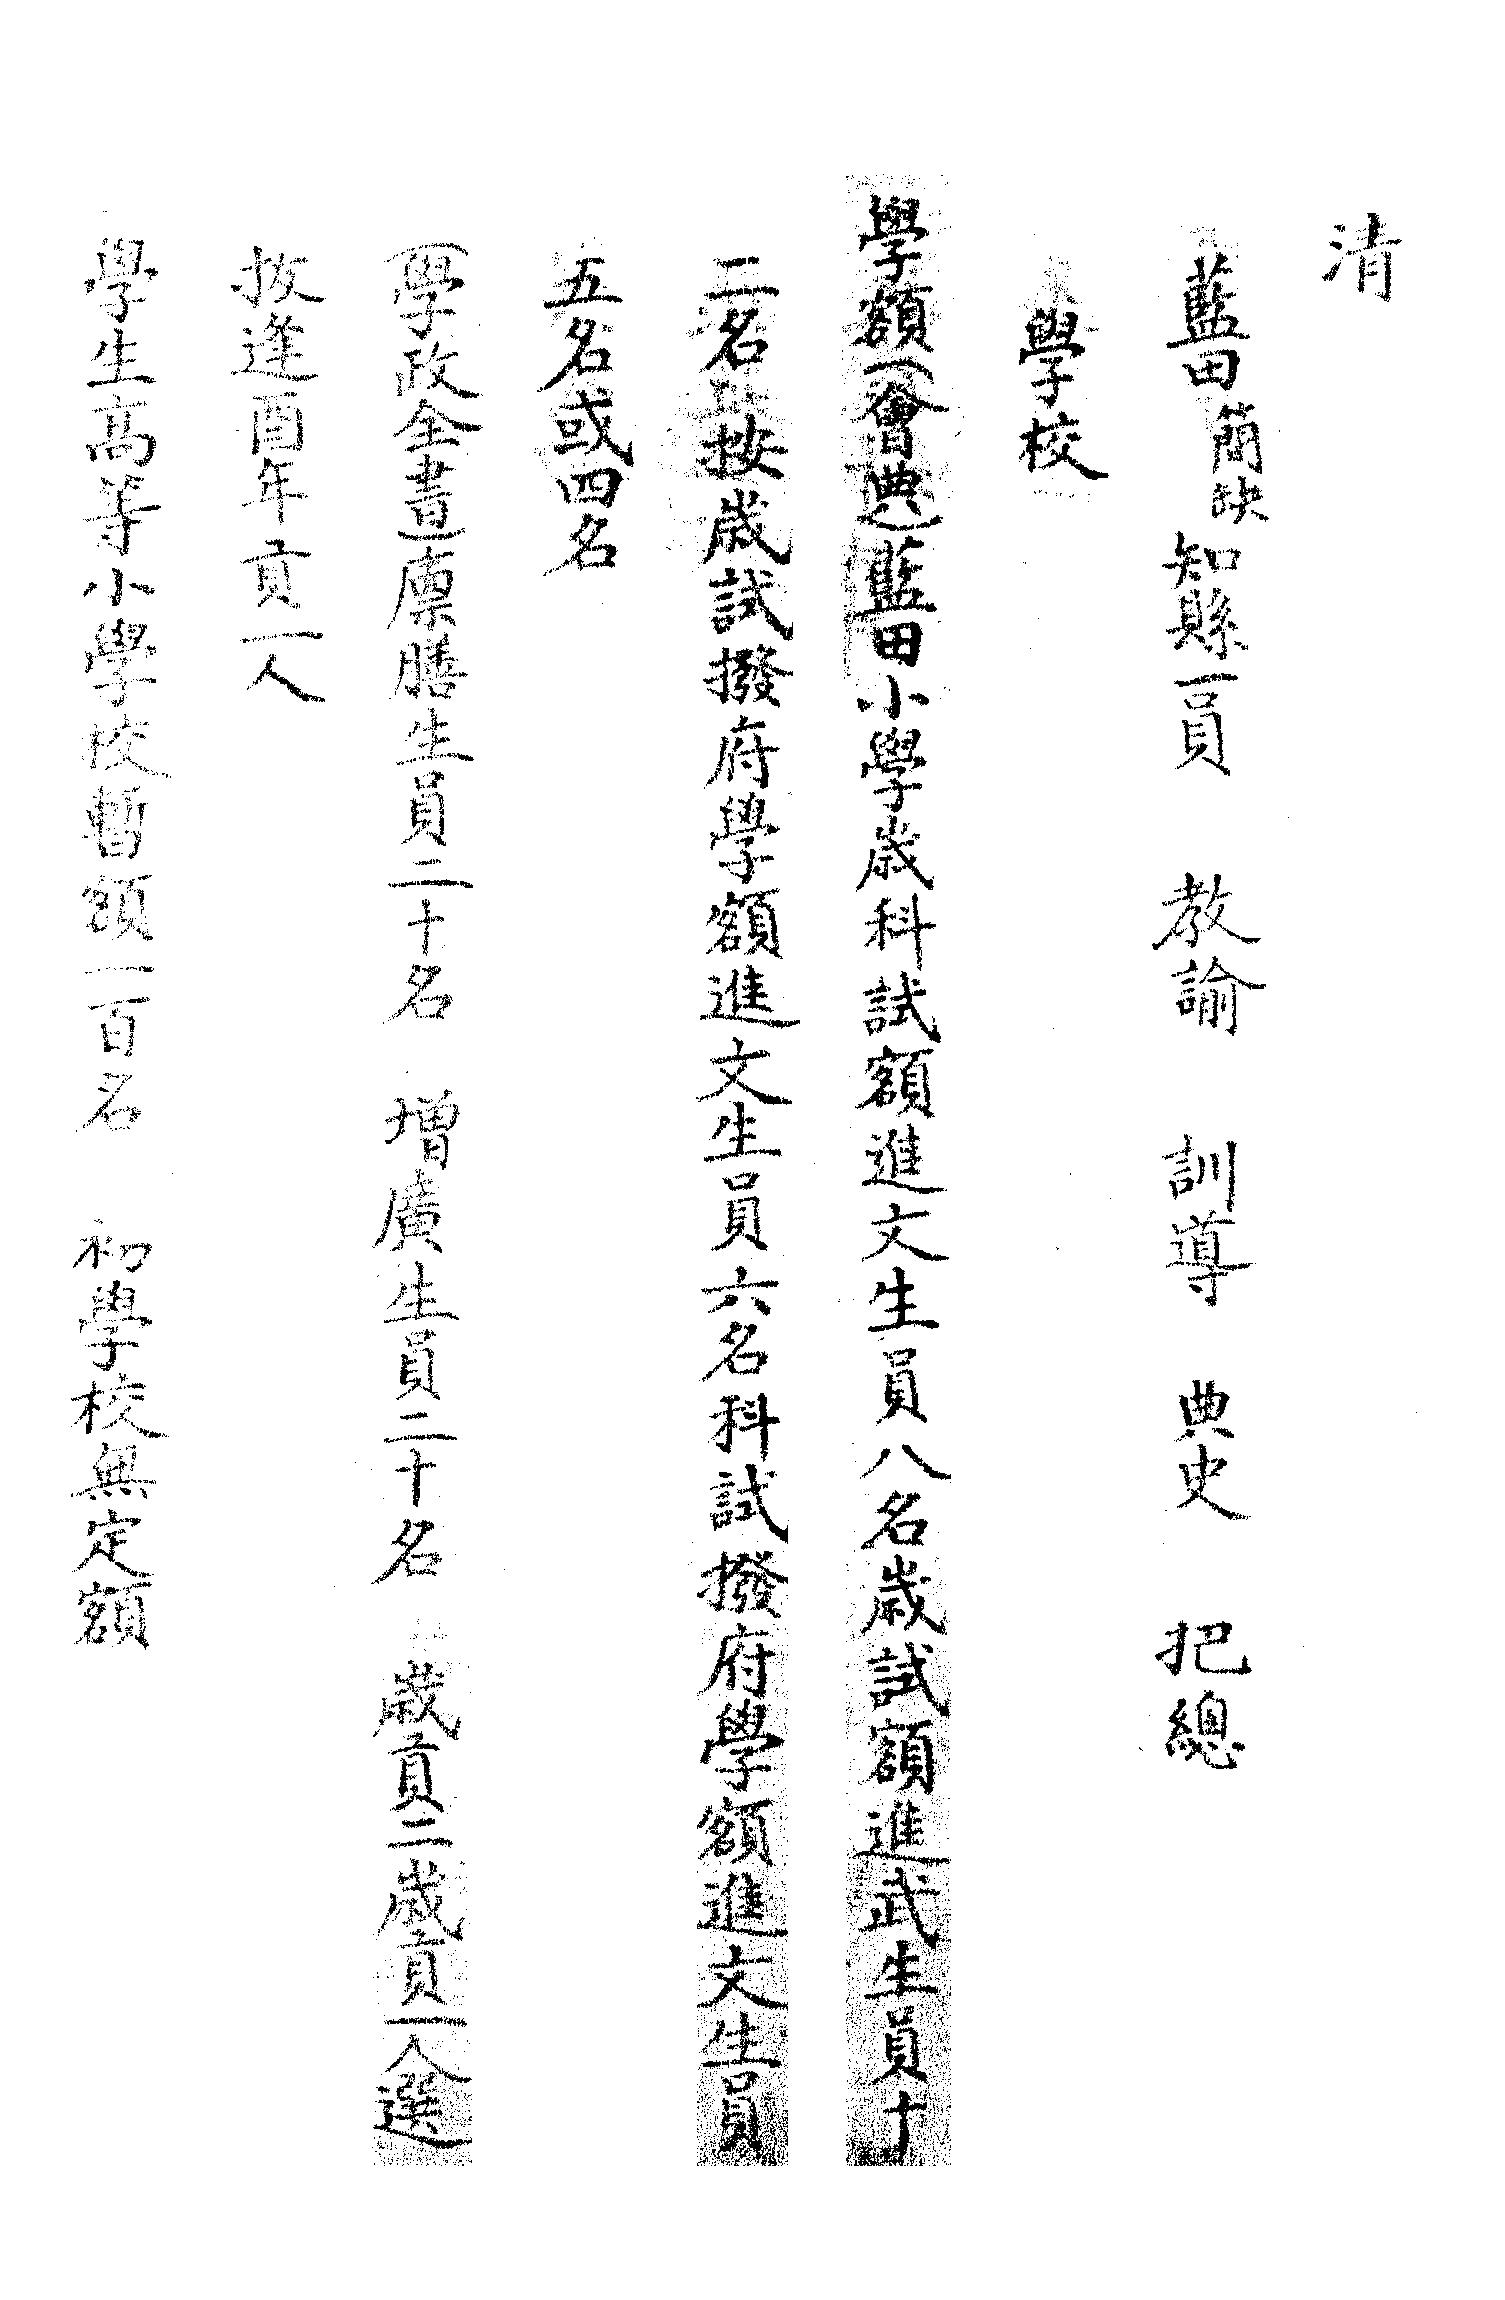 清
藍田簡缺知縣一員　教諭　訓導　典史　把總
學校
學額︹會典︺藍田小學歲科試額進文生員八名歲試額進武生員十
二名按歲試撥府學額進文生員六名科試撥府學額進文生員
五名或四名
︹學政全書︺廩膳生員二十名　增廣生員二十名　歲貢二歲貢一人選
拔逢酉年貢一人
學生高等小學校暫額一百名　初學校無定額